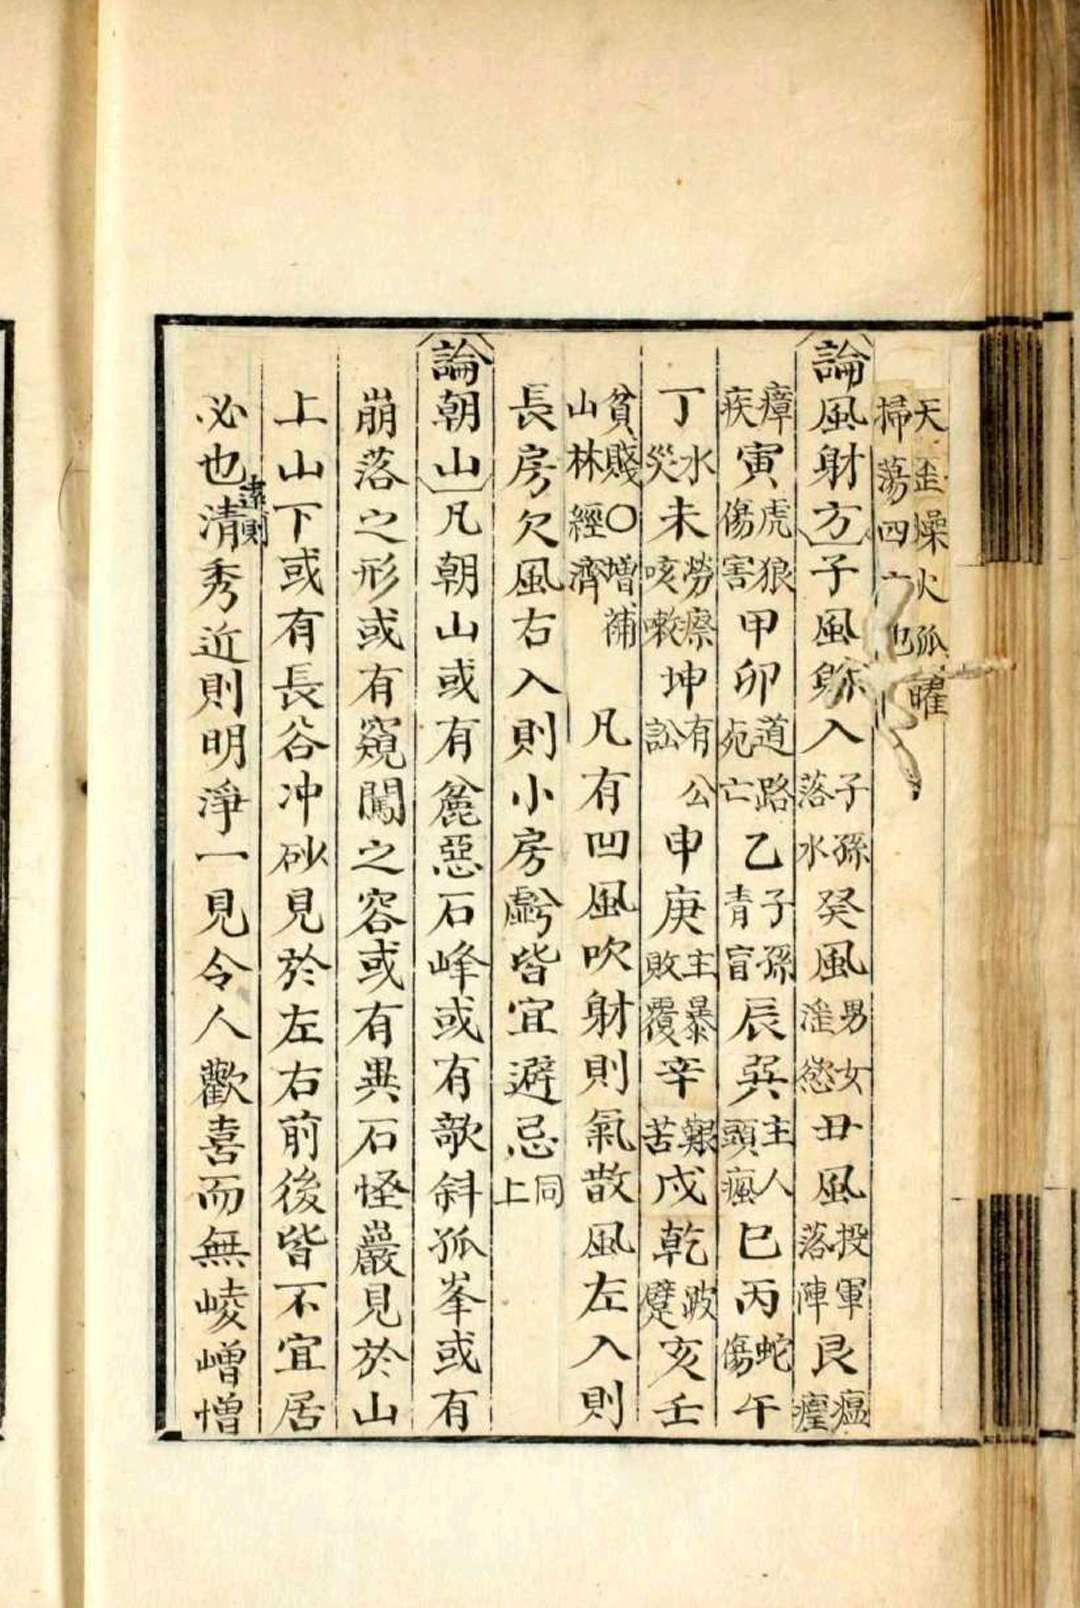 天歪燥火孤曜掃蕩四也
論風射方子風入子孫落水癸風男女淫慾丑風投軍落陣艮瘟
瘴疾寅虎狼傷害甲卯道路死亡乙子孫青盲辰巽主人頭瘋巳丙蛇傷午
丁水災未勞瘵咳嗽坤有公訟申庚主暴敗覆辛艱苦戍乾跛躄亥壬
貧賤〇增補山林經濟凡有凹風吹射則氣散風左入則
長房欠風右入則小房虧皆宜避忌同上
論朝山凡朝山或有麄惡石峰或有欹斜孤峯或有
崩落之形或有窺闖之容或有異石怪巖見於山
上山下或有長谷冲砂見於左右前後皆不宜居
必也遠則清秀近則明淨一見令人歡喜而無崚嶒憎